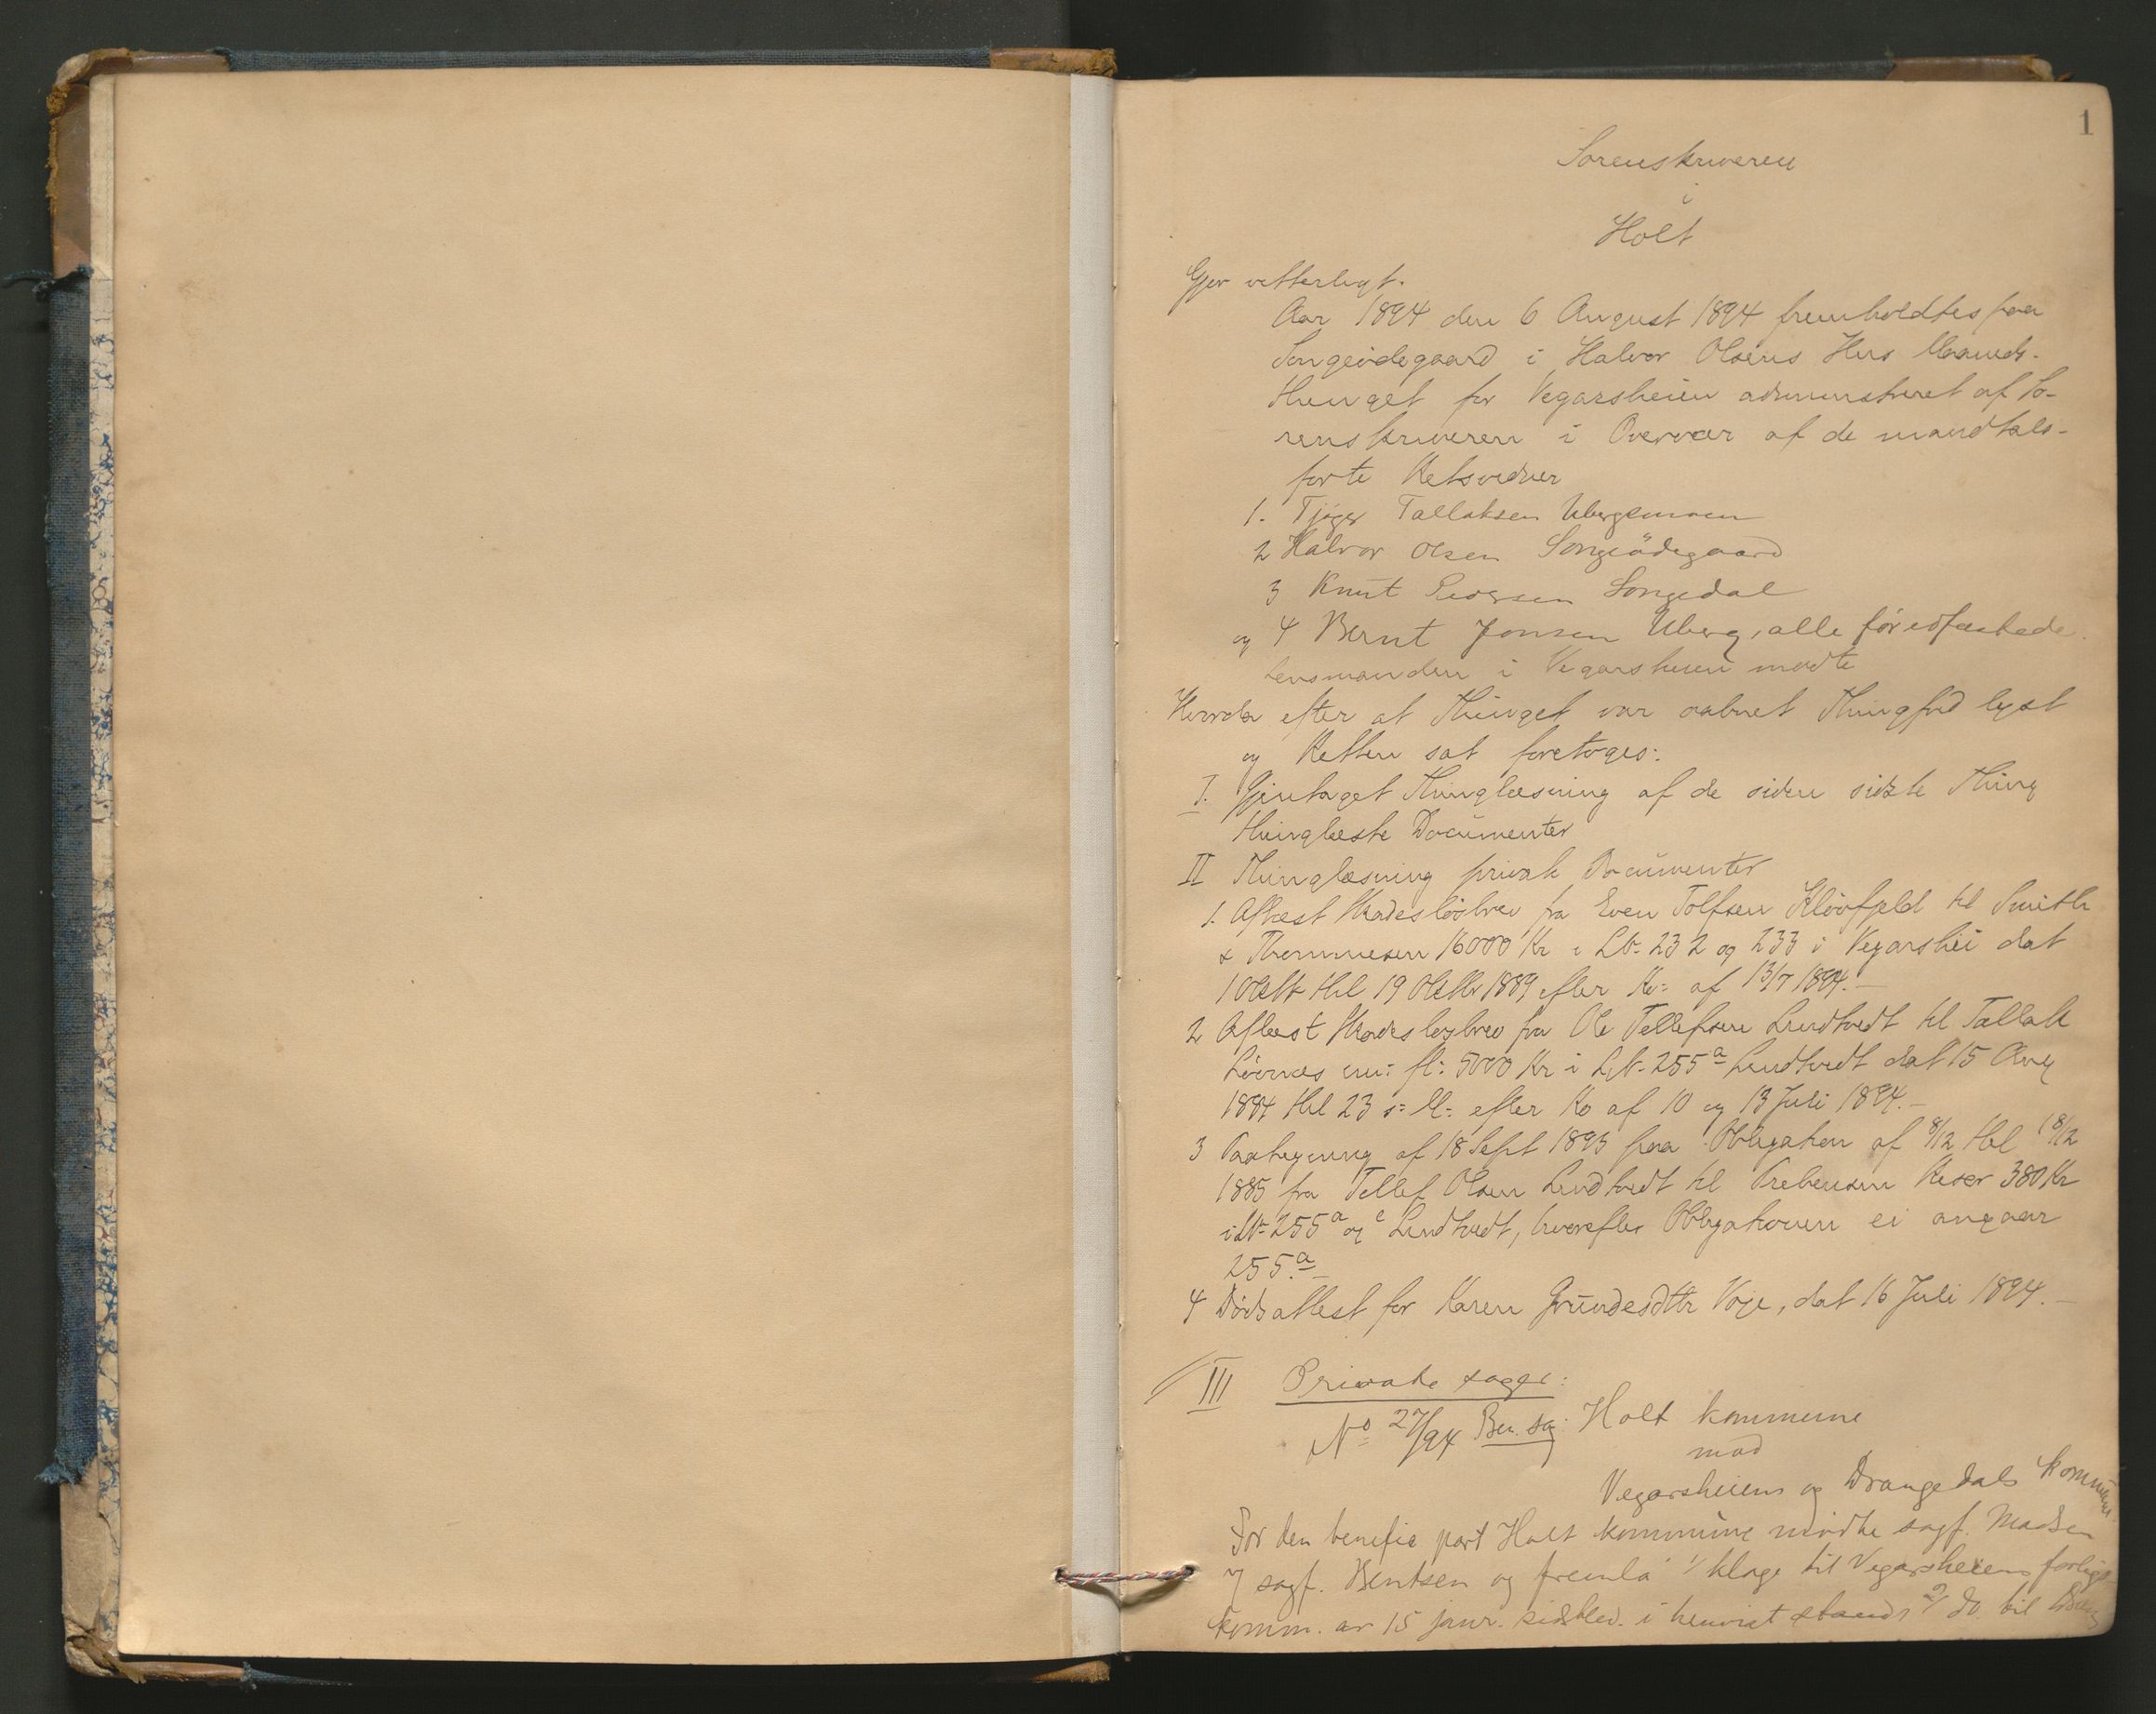 1
Sorenskriveren
i
Holt
Gjør vetterligt.
Aar 1894 den 6 August 1894 fremholdtes paa
Songeödegaard i Halvor Olsens Hus Maaneds-
thinget for Vegarsheien administreret af So-
renskriveren i Overvær af de mandtals-
førte Retsvidner
1. Tjöger Tallaksen Ubergsmoen
2 Halvor Olsen Songeödegaard
3 Knut Pedersen Songedal
og 4 Bernt Jonsen Uberg, alle før edfæstede.
Lensmanden i Vegarsheien mødte
Hvorda efter at Thinget var aabnet Thingfred lyst
og Retten sat foretoges:
I. Gjentaget Thinglæsning af de siden sidste Thing
thinglæste Documenter
II Thinglæsning private Documenter
1. Aflæst Skadesløsbrev fra Even Tolfsen Klövfjeld til Smith
& Thommesen 16000 Kr i LN 232 og 233 i Vegarshei dat
1 Oktb thl 19 Oktbr 1889 efter Kv: af 13/7 1894.-
2 Aflæst Skadesløsbrev fra Ole Tellefsen Lindtvedt til Tallak
Lövnæs m: fl: 5000 Kr i LN-255 a Lindtvedt dat 15 Aug
1894 thl 23 s: M: efter Kv af 10 og 13 Juli 1894.-
3 Paategning af 18 Sept 1893 paa Obligation af 8/12 thl 18/12
1885 fra Tellef Olsen Lindtvedt til Prebensen Risør 380 Kr
i LN-255 a og c Lindtvedt, hvorefter Obligationen ei angaar
255. a
4 Dødsattest for Karen Grundesdttr Voje, dat 16 Juli 1894.
III Private sager:
No 27/94 Ben. sag: Holt kommune
mod
Vegarsheiens og Drangedals kommune.
For den benefic part Holt kommune mødte sagf. Madsen
v/ sagf. Bentsen og fremla 1/ klage til Vegarsheiens forligs
komm. av 15 janr. sidstlev. i henvist stand, 2/ do. til